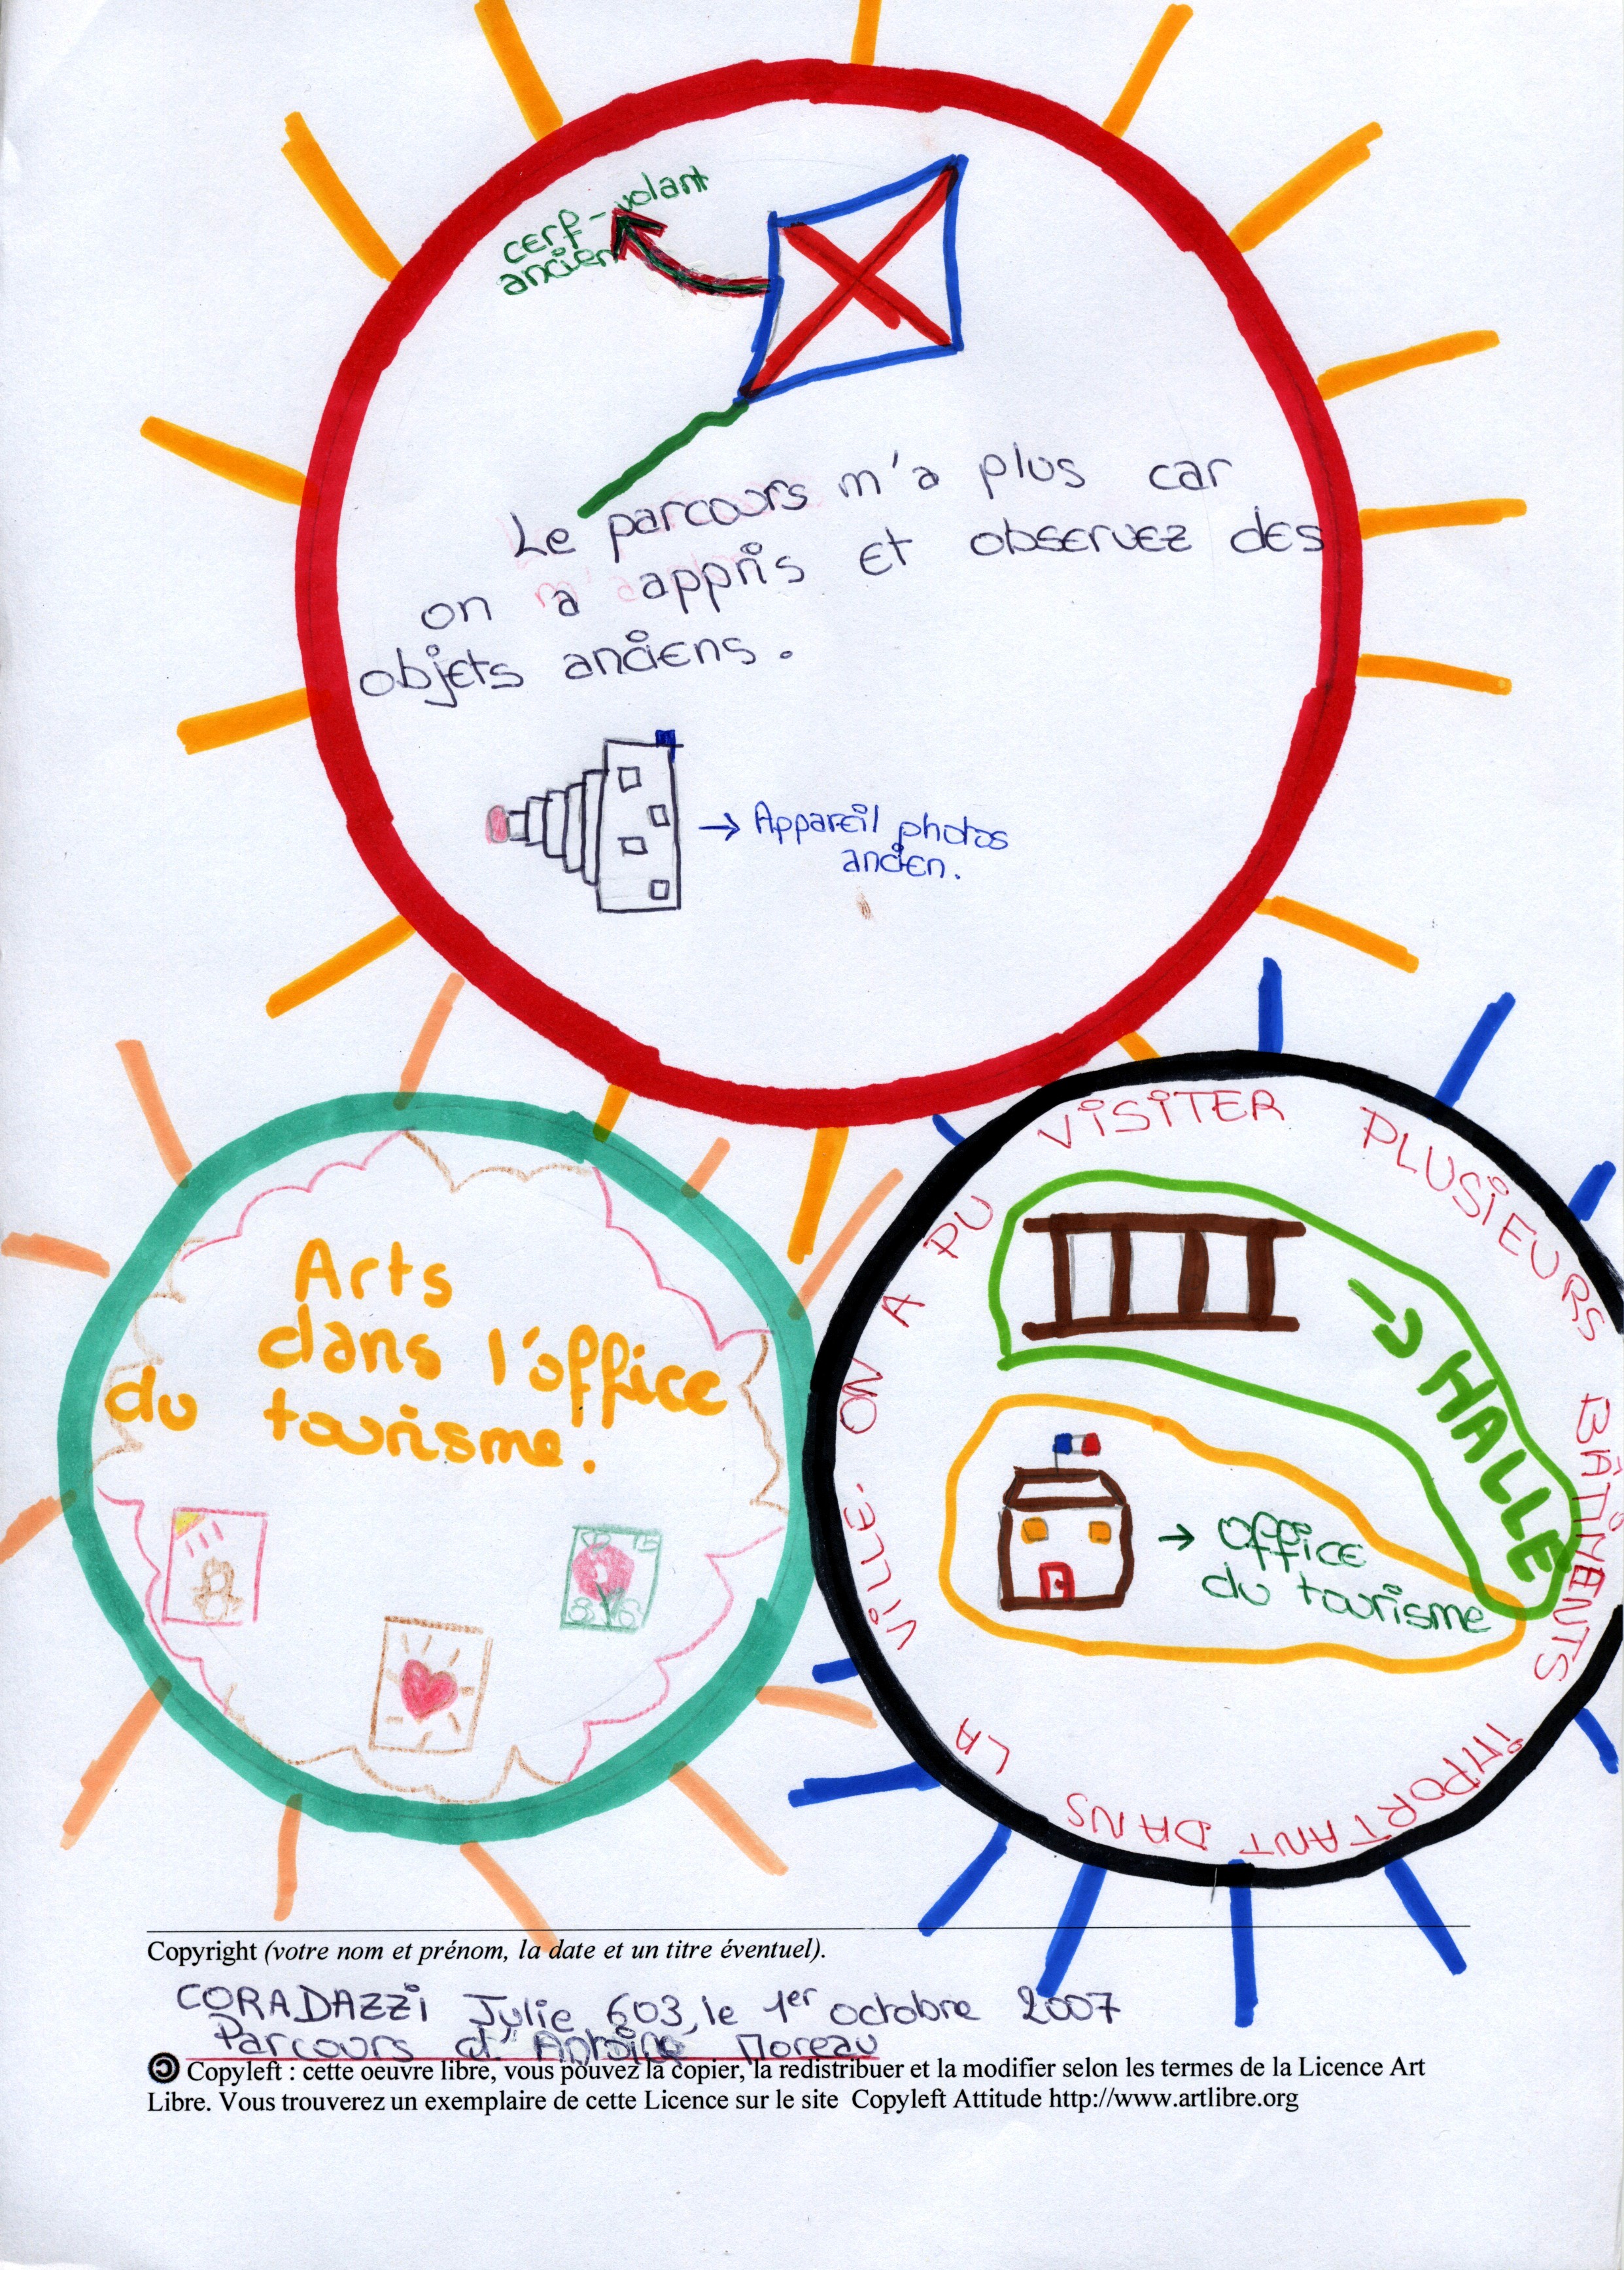 cerf-volant
ancien
Le parcours m'a plus car
on a appris et observez des
objets anciens.
→ Appareil photos
ancien.
Arts
dans l'office
du tourisme.
ON A PU VISITER PLUSIEURS BÂTIMENTS IMPORTANT DANS LA VILLE.
→ HALLE
→ office
du tourisme
Copyright (votre nom et prénom, la date et un titre éventuel).
CORADAZZI Julie 603, le 1er octobre 2007
Parcours d'Antoine Moreau
Copyleft : cette oeuvre libre, vous pouvez la copier, la redistribuer et la modifier selon les termes de la Licence Art
Libre. Vous trouverez un exemplaire de cette Licence sur le site Copyleft Attitude http://www.artlibre.org